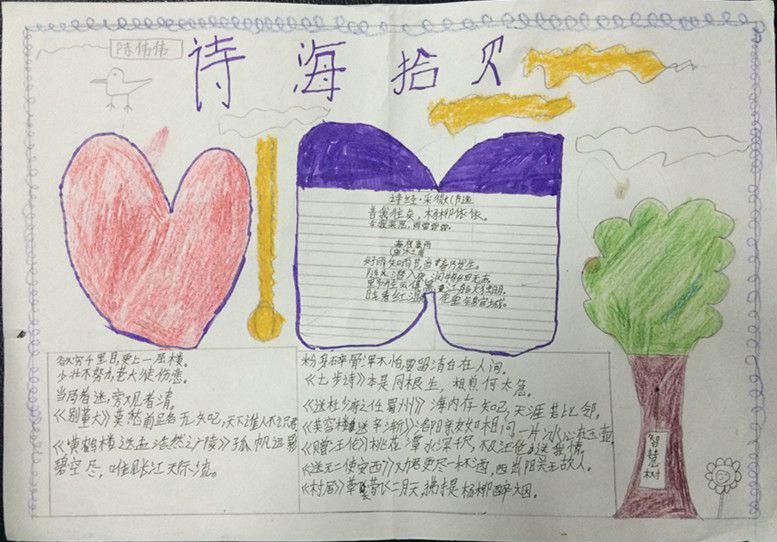 陈伟伟
诗海拾贝
诗经·采薇(节选
昔我往矣,杨柳依依。
今我来思,雨雪霏霏。
春夜喜雨
好雨知时节,当春乃发生。
随风潜入夜,润物细无声。
野径云俱黑,江船火独明。
晓看红湿处,花重锦官城。
欲穷千里目,更上一层楼。
少壮不努力,老大徒伤悲。
当局者迷,旁观者清。
《别董大》莫愁前路无知己,天下谁人不识君
《黄鹤楼送孟浩然之广陵》孤帆远影
碧空尽,唯见长江天际流。
粉身碎骨浑不怕,要留清白在人间。
《七步诗》本是同根生,相煎何太急。
《送杜少府之任蜀州》海内存知己,天涯若比邻。
《芙蓉楼送辛渐》洛阳亲友如相问一片冰心在玉壶
《赠汪伦》桃花潭水深千尺,不及汪伦送我情。
《送元二使安西》劝君更尽一杯酒,西出阳关无故人。
《村居》草长莺飞二月天,拂堤杨柳醉烟。
智慧树